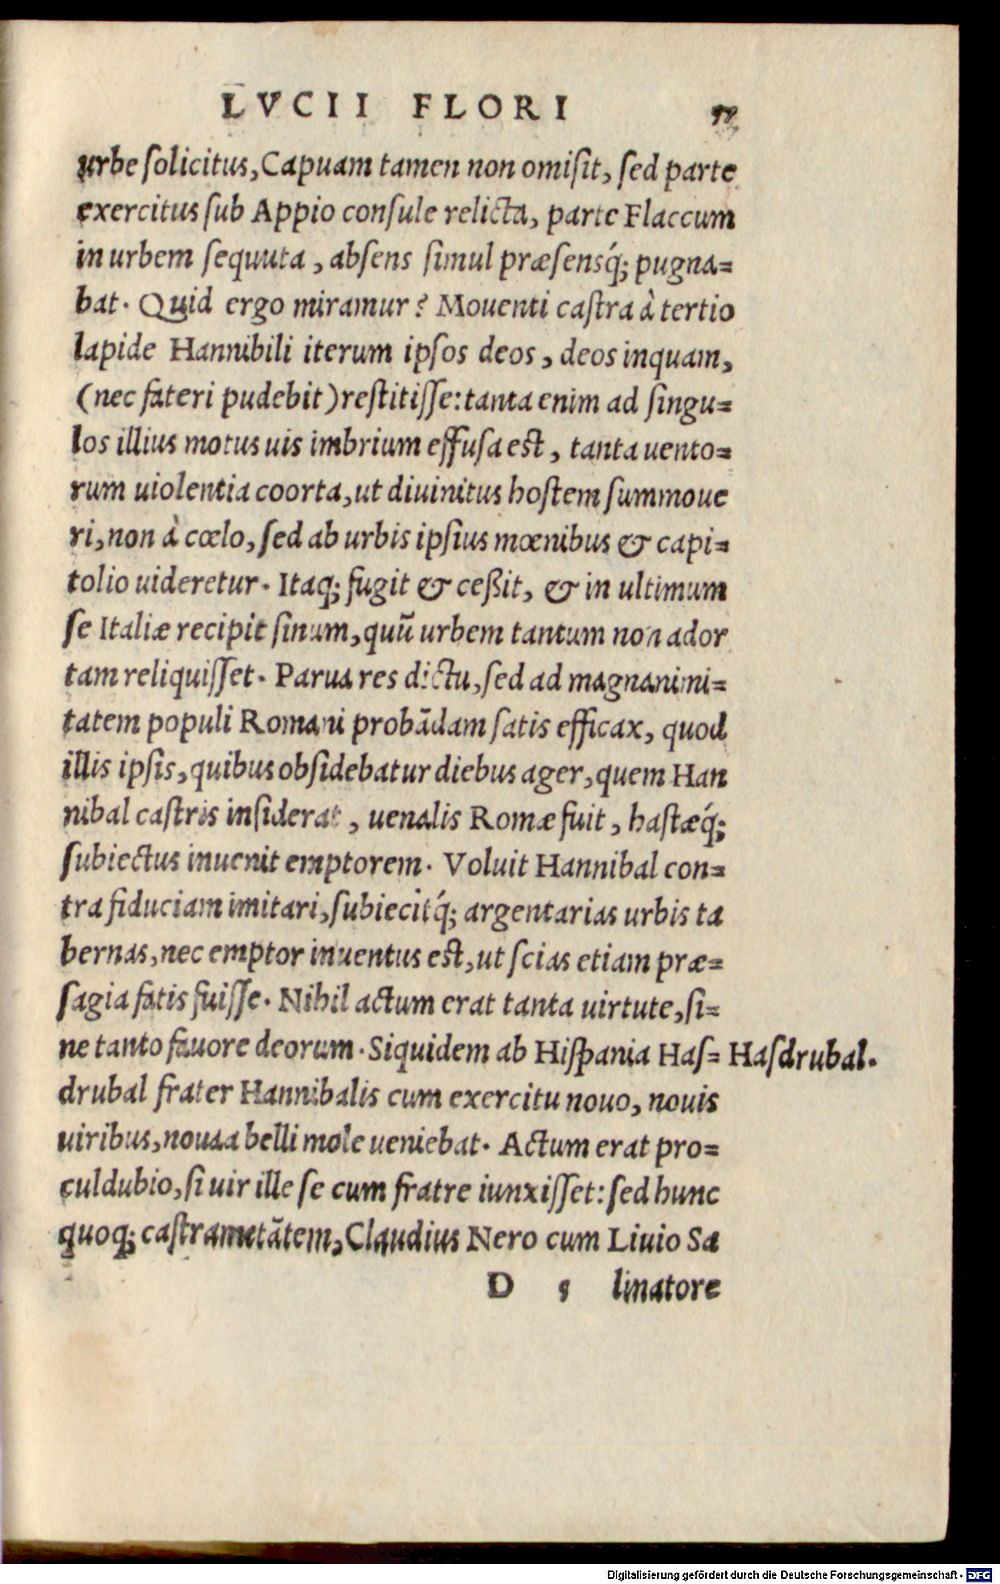 LVCII FLORI 57
urbe solicitus, Capuam tamen non omisit, sed parte
exercitus sub Appio consule relicta, parte Flaccum
in urbem sequuta, absens simul præsensq́; pugna=
bat. Quid ergo miramur? Mouenti castra à tertio
lapide Hannibili iterum ipsos deos, deos inquam,
(nec fateri pudebit) restitisse: tanta enim ad singu=
los illius motus uis imbrium effusa est, tanta uento=
rum uiolentia coorta, ut diuinitus hostem summoue
ri, non à cœlo, sed ab urbis ipsius mœnibus & capi=
tolio uideretur. Itaq; fugit & ceßit, & in ultimum
se Italiæ recipit sinum, quū urbem tantum non ador
tam reliquisset. Parua res dictu, sed ad magnanimi=
tatem populi Romani probādam satis efficax, quod
illis ipsis, quibus obsidebatur diebus ager, quem Han
nibal castris insiderat, uenalis Romæ fuit, hastæq́;
subiectus inuenit emptorem. Voluit Hannibal con=
tra fiduciam imitari, subiecitq́; argentarias urbis ta
bernas, nec emptor inuentus est, ut scias etiam præ=
sagia fatis fuisse. Nihil actum erat tanta uirtute, si=
ne tanto fauore deorum. Siquidem ab Hispania Has= Hasdrubal.
drubal frater Hannibalis cum exercitu nouo, nouis
uiribus, noua a belli mole ueniebat. Actum erat pro=
culdubio, si uir ille se cum fratre iunxisset: sed hunc
quoq; castrametātem, Claudius Nero cum Liuio Sa
D 5 linatore
Digitalisierung gefördert durch die Deutsche Forschungsgemeinschaft - DFG